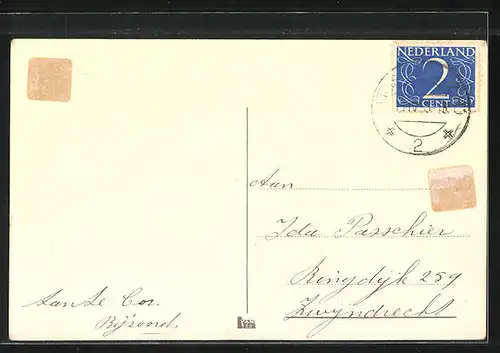 NEDERLAND
2
CENT
2
Aan
Ida Passchier
Ringdijk 259
Zwijndrecht
tante Cor.
Rijsoord.